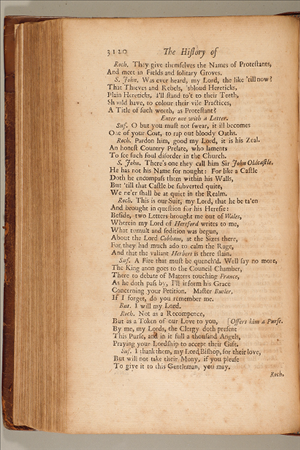 3120 The History of
Roch. They give themselves the Names of Protestants,
And meet in Fields and solitary Groves.
S. John. Was ever heard, my Lord, the like 'till now?
That Thieves and Rebels, 'sbloud Hereticks,
Plain Hereticks, I'll stand to't to their Teeth,
Should have, to colour their vile Practices,
A Title of such worth, as Protestant?
Enter one with a Letter.
Suf. O but you must not swear, it ill becomes
One of your Coat, to rap out bloody Oaths.
Roch. Pardon him, good my Lord, it is his Zeal.
An honest Country Prelate, who laments
To see such foul disorder in the Church.
S. John. There's one they call him Sir John Oldcastle,
He has not his Name for nought: For like a Castle
Doth he encompass them within his Walls,
But 'till that Castle be subverted quite,
We ne'er shall be at quiet in the Realm.
Roch. This is our Suit, my Lord, that he be ta'en
And brought in question for his Heresie:
Beside, two Letters brought me out of Wales,
Wherein my Lord of Hereford writes to me,
What tumult and sedition was begun,
About the Lord Cobham, at the Sizes there,
For they had much ado to calm the Rage,
And that the valiant Herbert is there slain.
Suf. A Fire that must be quench'd. Well say no more,
The King anon goes to the Council Chamber,
There to debate of Matters touching France,
As he doth pass by, I'll inform his Grace
Concerning your Petition. Master Butler,
If I forget, do you remember me.
But. I will my Lord.
Roch. Not as a Recompence,
But as a Token of our Love to you, [Offers him a Purse.
By me, my Lords, the Clergy doth present
This Purse, and in it full a thousand Angels,
Praying your Lordship to accept their Gift.
Suf. I thank them, my Lord Bishop, for their love,
But will not take their Mony, if you please
To give it to this Gentleman, you may.
Roch.